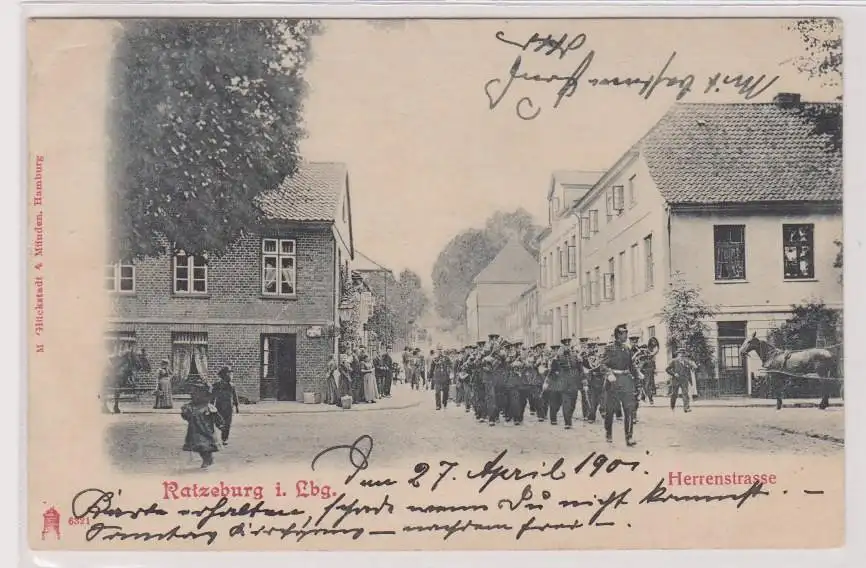 Mit bestem
M Glückstadt & Münden, Hamburg
Ratzeburg i. Lbg.
Herrenstrasse
den 27. April 1901.
6321
Karte erhalten, schade wenn Du nicht kommst. –
Sonntag – nachdem frei –